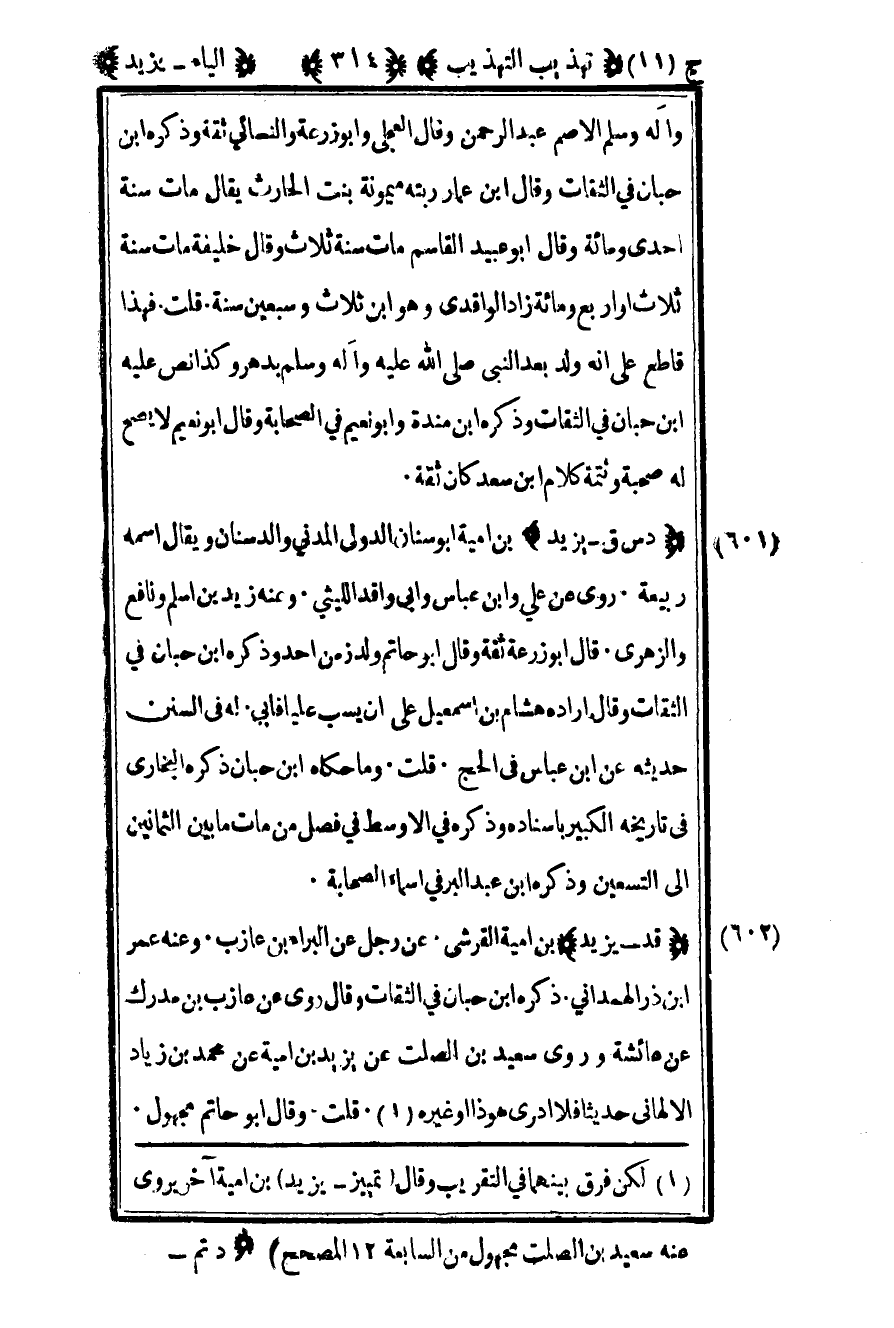 ج (١١) ﴿ تهذيب التهذيب ﴾ ﴿ ٣١٤ ﴾ ﴿ الياء ـ يزيد ﴾
وآله وسلم الاصم عبدالرحمن وقال العجلي وابوزرعة والنسائي ثقة وذكره ابن
حبان في الثقات وقال ابن عمار ربته ميمونة بنت الحارث يقال مات سنة
احدى ومائة وقال ابوعبيد القاسم مات سنة ثلاث وقال خليفة مات سنة
ثلاث اواربع ومائة زاد الواقدى وهو ابن ثلاث وسبعين سنة ٠ قلت ٠ فهذا
قاطع على انه ولد بعد النبى صلى الله عليه وآله وسلم بدهر وكذا نص عليه
ابن حبان في الثقات وذكره ابن مندة وابونعيم في الصحابة وقال ابونعيم لا يصح
له صحبة وتتمة كلام ابن سعد كان ثقة ٠
(٦٠١) ﴿ دس ق ـ يزيد ﴾ بن امية ابوسنان الدولى المدني والد سنان ويقال اسمه
ربيعة ٠ روى عن علي وابن عباس وابى واقد الليثي ٠ وعنه زيد بن اسلم ونافع
والزهرى ٠ قال ابوزرعة ثقة وقال ابوحاتم ولد زمن احد وذكره ابن حبان في
الثقات وقال اراده هشام بن اسمعيل على ان يسب عليا فابي ٠ له فى السنن
حديثه عن ابن عباس فى الحج ٠ قلت ٠ وما حكاه ابن حبان ذكره البخارى
فى تاريخه الكبير باسناده وذكره في الاوسط في فصل من مات ما بين الثمانين
الى التسعين وذكره ابن عبدالبر في اسماء الصحابة ٠
(٦٠٢) ﴿ قد ـ يزيد ﴾ بن امية القرشى ٠ عن رجل عن البراء بن عازب ٠ وعنه عمر
ابن ذر الهمداني ٠ ذكره ابن حبان في الثقات وقال روى عن عازب بن مدرك
عن عائشة وروى سعيد بن الصلت عن يزيد بن امية عن محمد بن زياد
الالهانى حديثا فلا ادرى هوذا اوغيره (١) ٠ قلت ٠ وقال ابو حاتم مجهول ٠
(١) لكن فرق بينهما في التقريب وقال (تمييز ـ يزيد) بن امية آخر يروى
عنه سعيد بن الصلت مجهول من السابعة ١٢ المصحح) ﴿ د تم ـ